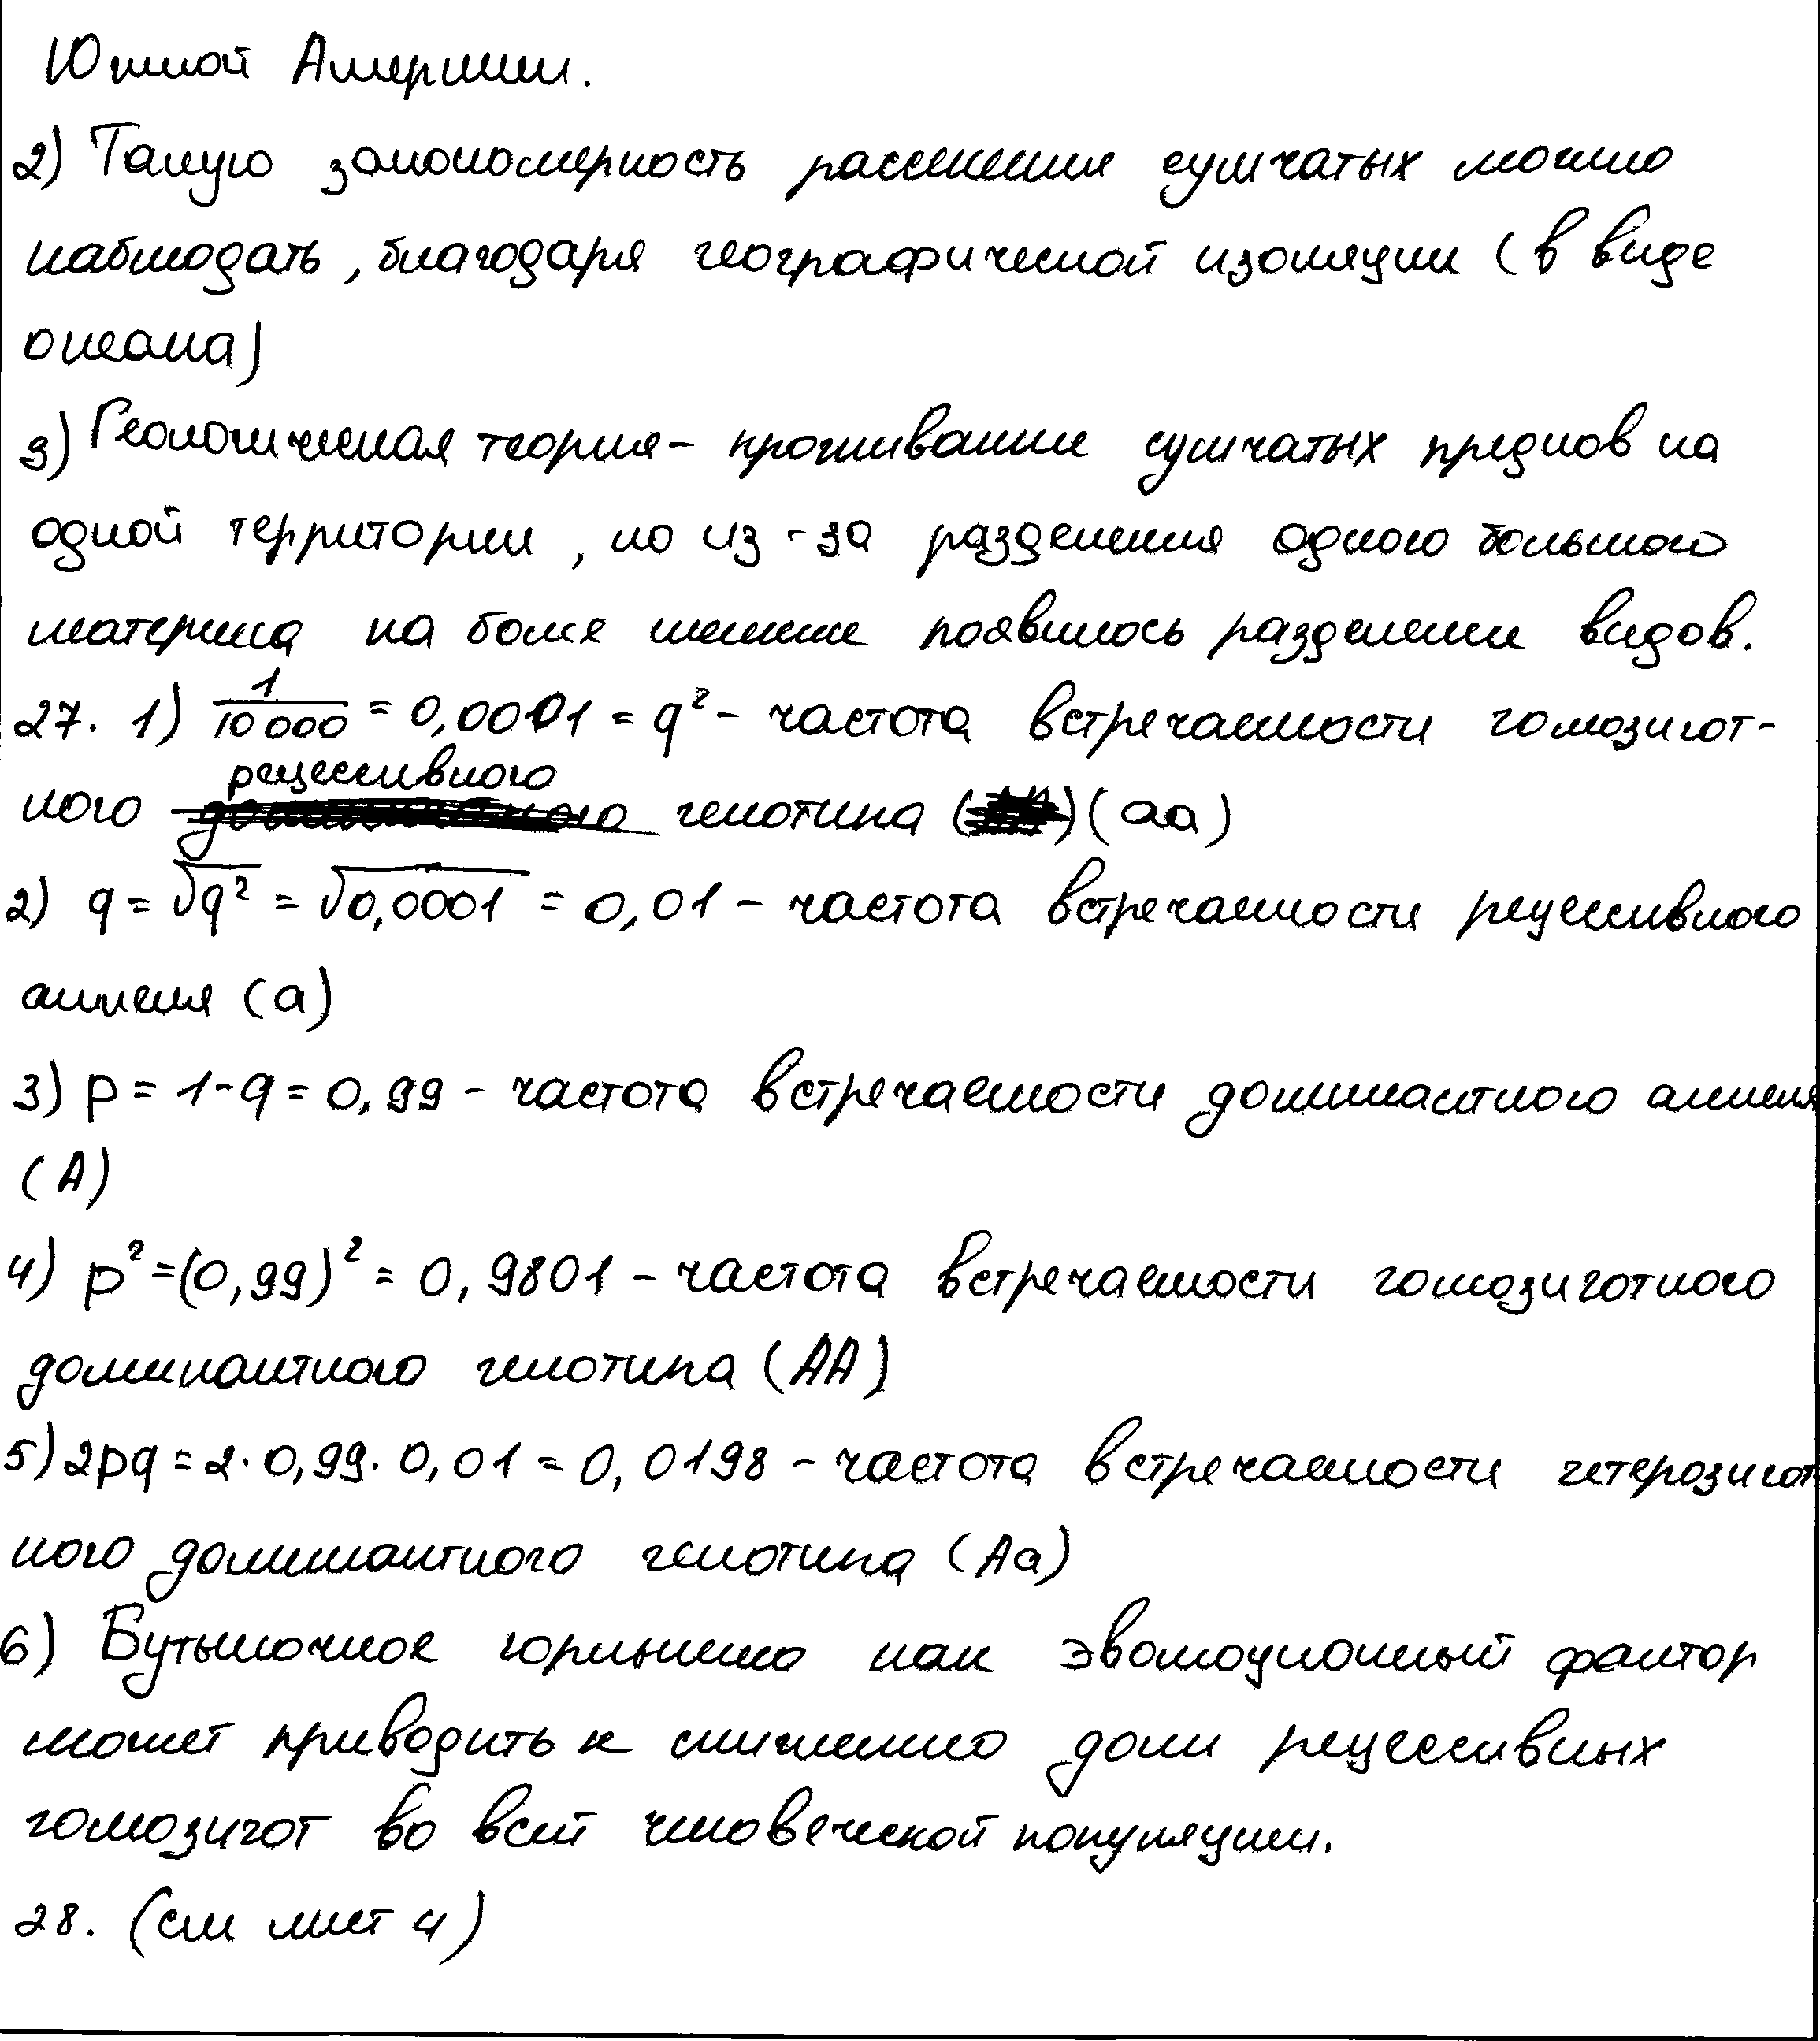 Южной Америки.
2) Такую закономерность расселения сумчатых можно
наблюдать, благодаря географической изоляции (в виде
океана)
3) Геологическая теория - проживание сумчатых предков на
одной территории, но из-за разделения одного большого
материка на более мелкие появилось разделение видов.
27. 1) 1/10 000 = 0,0001 = q² - частота встречаемости гомозигот-
ного рецессивного генотипа (aa)
2) q = √q² = √0,0001 = 0,01 - частота встречаемости рецессивного
аллеля (a)
3) p = 1-q = 0,99 - частота встречаемости доминантного аллеля
(A)
4) p² = (0,99)² = 0,9801 - частота встречаемости гомозиготного
доминантного генотипа (AA)
5) 2pq = 2·0,99·0,01 = 0,0198 - частота встречаемости гетерозигот-
ного доминантного генотипа (Aa)
6) Бутылочное горлышко как эволюционный фактор
может приводить к снижению доли рецессивных
гомозигот во всей человеческой популяции.
28. (см лист 4)